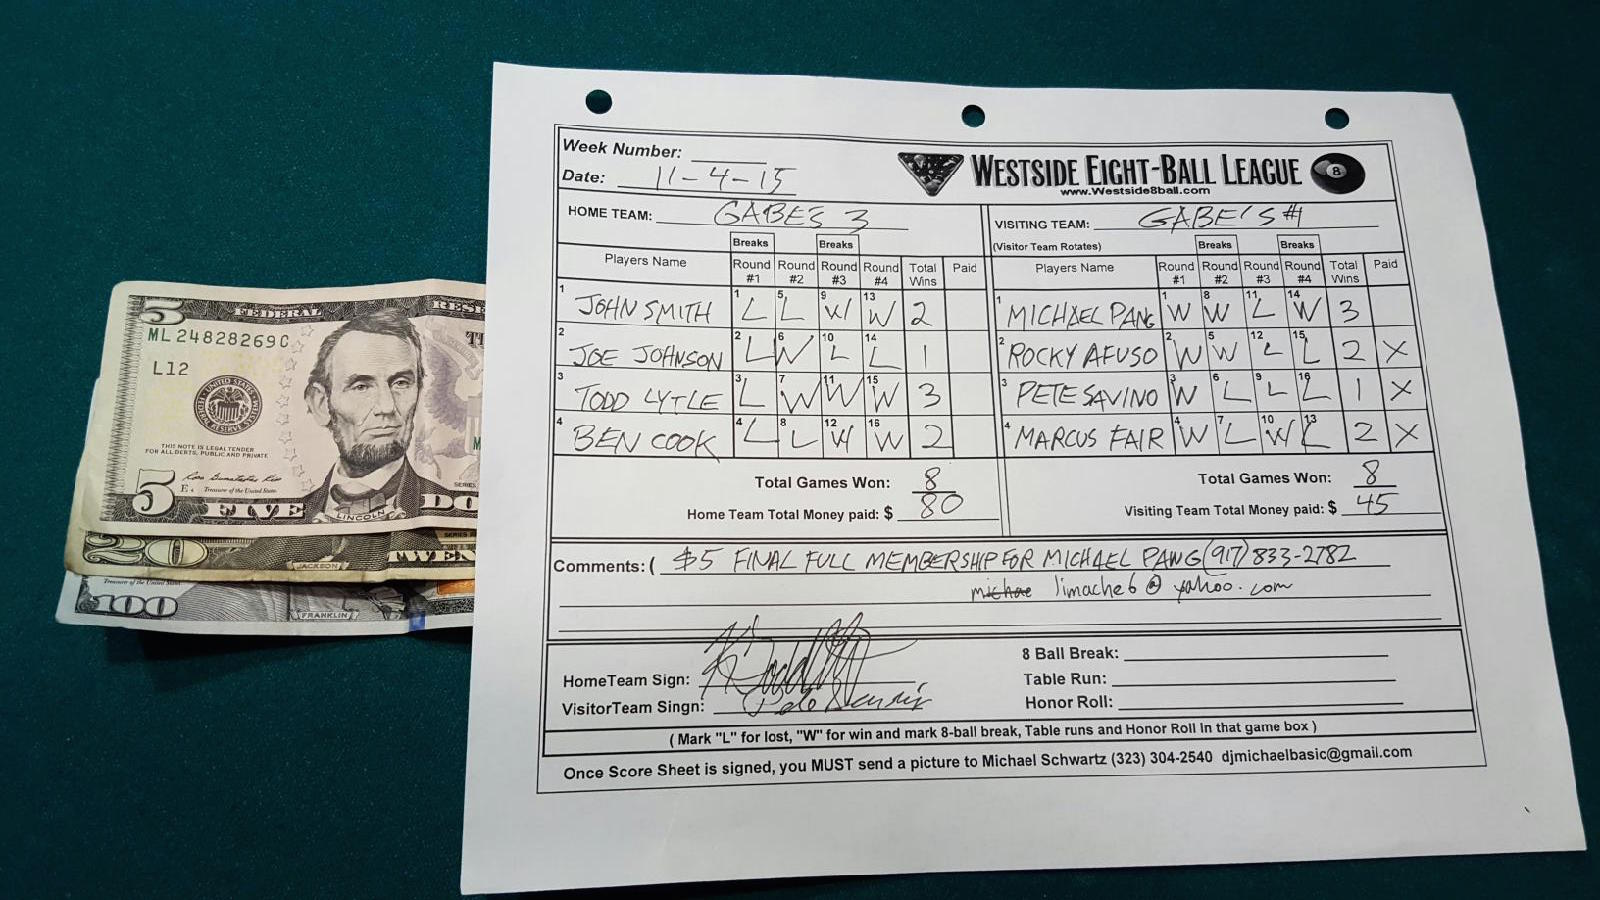 Week Number:
Date: 11-4-15
WESTSIDE EIGHT-BALL LEAGUE
www.Westside8ball.com
8
HOME TEAM: GABES 3
VISITING TEAM: GABE'S #1
(Visitor Team Rotates)
Breaks Breaks Breaks Breaks
Players Name Round #1 Round #2 Round #3 Round #4 Total Wins Paid
Players Name Round #1 Round #2 Round #3 Round #4 Total Wins Paid
1 JOHN SMITH 1 L 5 L 9 W 13 W 2
1 MICHAEL PANG 1 W 8 W 11 L 14 W 3
2 JOE JOHNSON 2 L 6 W 10 L 14 L 1
2 ROCKY AFUSO 2 W 5 W 12 L 15 L 2 X
3 TODD LYTLE 3 L 7 W 11 W 15 W 3
3 PETE SAVINO 3 W 6 L 9 L 16 L 1 X
4 BEN COOK 4 L 8 L 12 W 16 W 2
4 MARCUS FAIR 4 W 7 L 10 W 13 L 2 X
Total Games Won: 8
Total Games Won: 8
Home Team Total Money paid: $ 80
Visiting Team Total Money paid: $ 45
Comments: ( $5 FINAL FULL MEMBERSHIP FOR MICHAEL PANG (917) 833-2782
limache6@yahoo.com
8 Ball Break:
HomeTeam Sign:
Table Run:
VisitorTeam Singn:
Honor Roll:
( Mark "L" for lost, "W" for win and mark 8-ball break, Table runs and Honor Roll In that game box )
Once Score Sheet is signed, you MUST send a picture to Michael Schwartz (323) 304-2540 djmichaelbasic@gmail.com
5 FEDERAL
ML 24828269 C
L12
THIS NOTE IS LEGAL TENDER
FOR ALL DEBTS, PUBLIC AND PRIVATE
Treasurer of the United States
5 FIVE LINCOLN
20 JACKSON
Treasurer of the United States
100 FRANKLIN